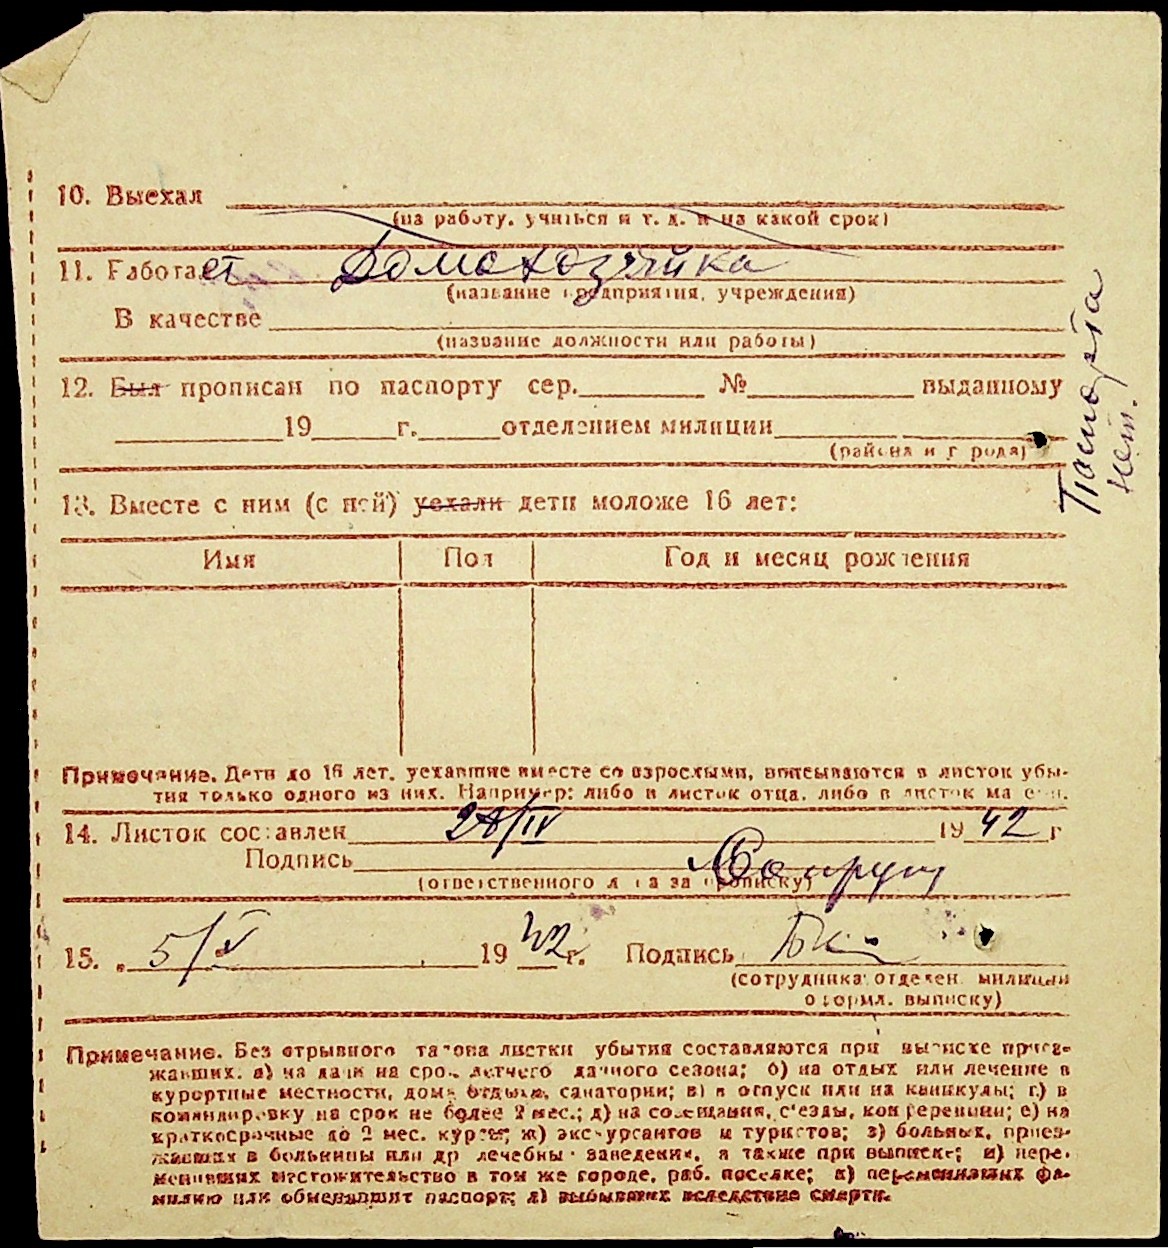 10. Выехал
(на работу, учиться и т. д. и на какой срок)
11. Работает Домохозяйка
(название предприятия, учреждения)
В качестве
(название должности или работы)
12. Был прописан по паспорту сер. № выданному
19 г. отделением милиции
(района и города)
Паспорта
нет.
13. Вместе с ним (с ней) уехали дети моложе 16 лет:
Имя Пол Год и месяц рождения
Примечание. Дети до 16 лет, уехавшие вместе со взрослыми, вписываются в листок убы-
тия только одного из них. Например: либо в листок отца, либо в листок матери.
14. Листок составлен 28/IV 1942 г
Подпись
(ответственного лица за прописку)
15. 5/V 1942 г. Подпись
(сотрудника отделен. милиции
оформл. выписку)
Примечание. Без отрывного талона листки убытия составляются при выписке приез-
жавших: а) на дачи на срок летнего дачного сезона; б) на отдых или лечение в
курортные местности, дома отдыха, санатории; в) в отпуск или на каникулы; г) в
командировку на срок не более 2 мес.; д) на совещания, с'езды, конференции; е) на
краткосрочные до 2 мес. курсы; ж) экскурсантов и туристов; з) больных, приез-
жавших в больницы или др лечебны заведения, а также при выписке; и) пере-
менивших местожительство в том же городе, раб. поселке; к) переменивших фа-
милию или обменявших паспорт; л) выбывших вследствие смерти.